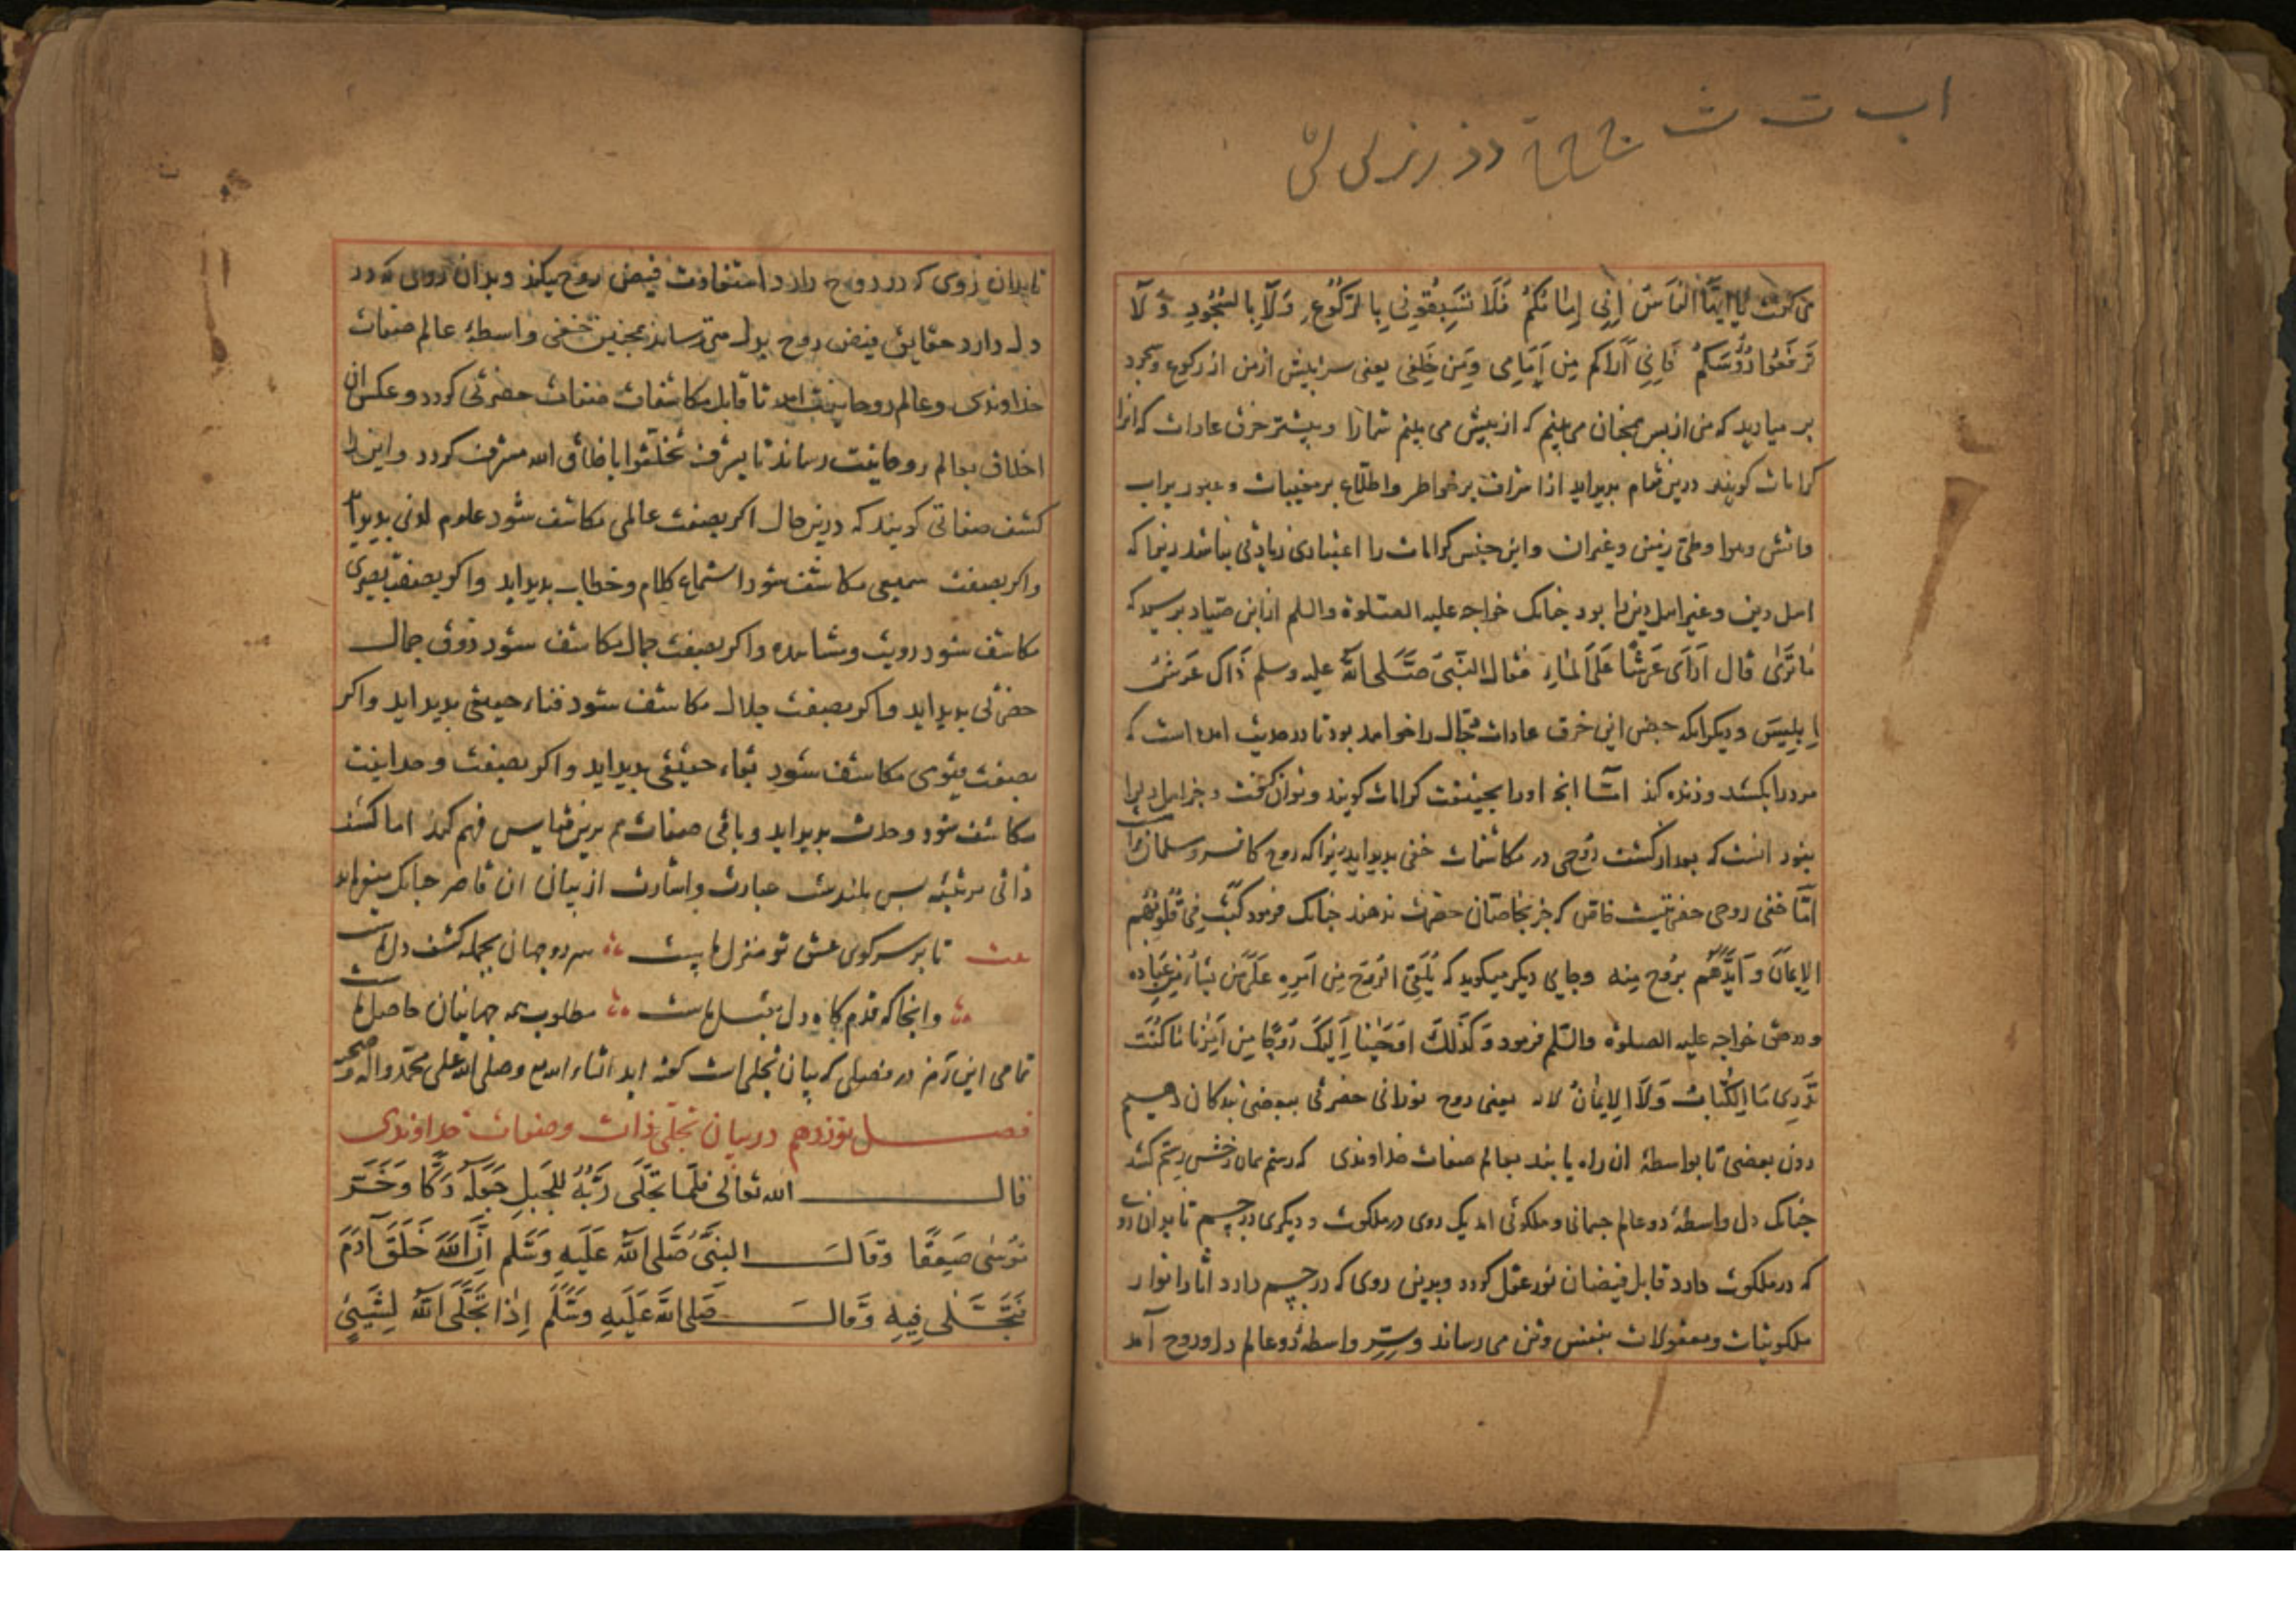 اب ت ث ج ح خ د ذ ر ز
می گفت یا ایها الناس اِنی اِمامکُم فَلا تَسبِقُونِی بِالرکُوعِ وَلا بِالسُجُودِ وَلا
تَرفَعُوا رُؤسَکم فَاِنِی اَراکم مِن اَمَامِی وَمِن خَلفِی یعنی سر پیش از من از رکوع و سجود
بر میارید که من از پس همچنان می بینم که از پیش می بینم شمارا و بیشتر خرق عادات که انرا
کرامات کویند درین مقام بدید اید از اشراف بر خواطر و اطلاع بر مغیبات و عبور بر اب
و اتش و هوا و طی زمین و غیر ان و این جنس کرامات را اعتباری زیادتی نباشد زیرا که
اهل دین و غیر اهل دین را بود جنانک خواجه علیه الصلوة والسلم از ابن صیاد برسید که
مَا تَرَیٰ قال اَرَی عَرشًا عَلَی المَاءِ فقال النَبیَ صَلَی الله علیه وسلم ذَاک عَرشُ
اِبلِیسَ و دیکر انکه بعضی این خرق عادات دجال را خواهد بود تا در حدیث امده است که
مرد را بکشد و زنده کند اما انچ او را بحقیقت کرامات کویند و توان گفت و جز اهل دین را
نبود انست که بعد از کشف روحی در مکاشفات خفی بدید اید زیرا که روح کافر و مسلمان را است
امّا خفی روحی حضرتیست خاص که جز بخاصان حضرت ندهند جنانک فرمود کَتَبَ فِی قُلُوبِهِم
الاِیمَانَ وَ اَیَّدَهُم بِرُوحٍ مِنه و جایی دیکر میکوید که یُلقِی الرُوحَ مِن اَمرِهِ عَلَی مَن یَشَاءُ مِن عِبَادِه
و در حق خواجه علیه الصلوة والسلم فرمود وَ کَذٰلِکَ اَوحَینَا اِلَیکَ رُوحًا مِن اَمرِنَا مَا کُنتَ
تَدرِی مَا الکِتَابُ وَلَا الاِیمَانُ یعنی روح نورانی حضرتی ببعضی بندکان دهیم
دون بعضی تا بواسطهٔ ان راه یابند بعالم صفات خداوندی که رستم را هم رخش رستم کشد
جنانک دل واسطهٔ دو عالم جسمانی و ملکوتی امد یک روی در ملکوت و دیکری در جسم تا بدان روی
که در ملکوت دارد قابل فیضان نور عقل کردد و بدین روی که در جسم دارد اثار انوار
ملکوتیات و معقولات بنفس و تن می رساند و سِر واسطهٔ دو عالم دل و روح آمد
تا بدان روی که در روح دارد استفادت فیض روح میکند و بدان روی که در
دل دارد حقایق فیض روح بدل می رساند همچنین خفی واسطهٔ عالم صفات
خداوندی و عالم روحانیت امد تا قابل مکاشفات صفات حضرتی کردد و عکس ان
اخلاق بعالم روحانیت رساند تا بشرف تخلّقوا باخلاق الله مشرف کردد و این را
کشف صفاتی کویند که درین حال اکر بصفت عالمی مکاشف شود علوم لدنی بدید آید
و اکر بصفت سمیعی مکاشف شود استماع کلام و خطاب بدید اید و اکر بصفت بصیری
مکاشف شود رویت و مشاهده و اکر بصفت جمال مکاشف شود ذوق جمال
حضرتی بدید اید و اکر بصفت جلال مکاشف شود فناء حقیقی بدید اید و اکر
بصفت قیّومی مکاشف شود بقاء حقیقی بدید اید و اکر بصفت وحدانیت
مکاشف شود وحدت بدید اید و باقی صفات هم برین قیاس فهم کند اما کشف
ذاتی مرتبه بس بلندست عبارت و اشارت از بیان ان قاصر جنانک میفرماید
تا بر سر کوی عشق تو منزل ماست سر دو جهان بجمله کشف دل ماست
وانجا که قدم کاه دل مقبل ماست مطلوب همه جهانیان حاصل ماست
تمامی این رمز در فصلی که بیان تجلی است کفته اید انشاء الله و صلی الله علی محمد و اله و صحبه
فصل نوزدهم در بیان تجلّی ذات و صفات خداوندی
قال الله تعالی فَلَمَّا تَجَلَّی رَبُّهُ لِلجَبَلِ جَعَلَهُ دَکًّا وَ خَرَّ
مُوسٰی صَعِقًا وَقَالَ النبیُّ صَلَّی الله عَلَیهِ وَسَّلم اِنَّ اللهَ خَلَقَ آدَمَ
فَتَجَلّٰی فِیهِ وَقالَ صَلی الله عَلَیهِ وَسَلَّم اِذَا تَجَلَّی اللهُ لِشَیئٍ